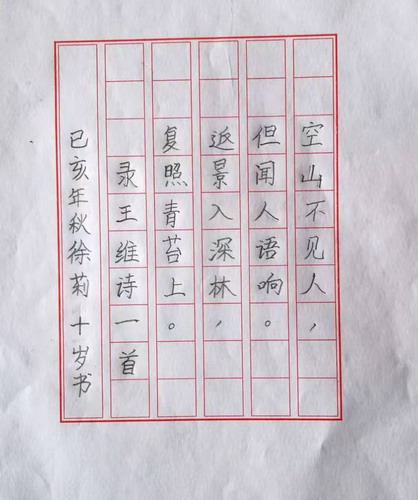 空山不见人，
但闻人语响。
返景入深林，
复照青苔上。
录王维诗一首
己亥年秋徐莉十岁书